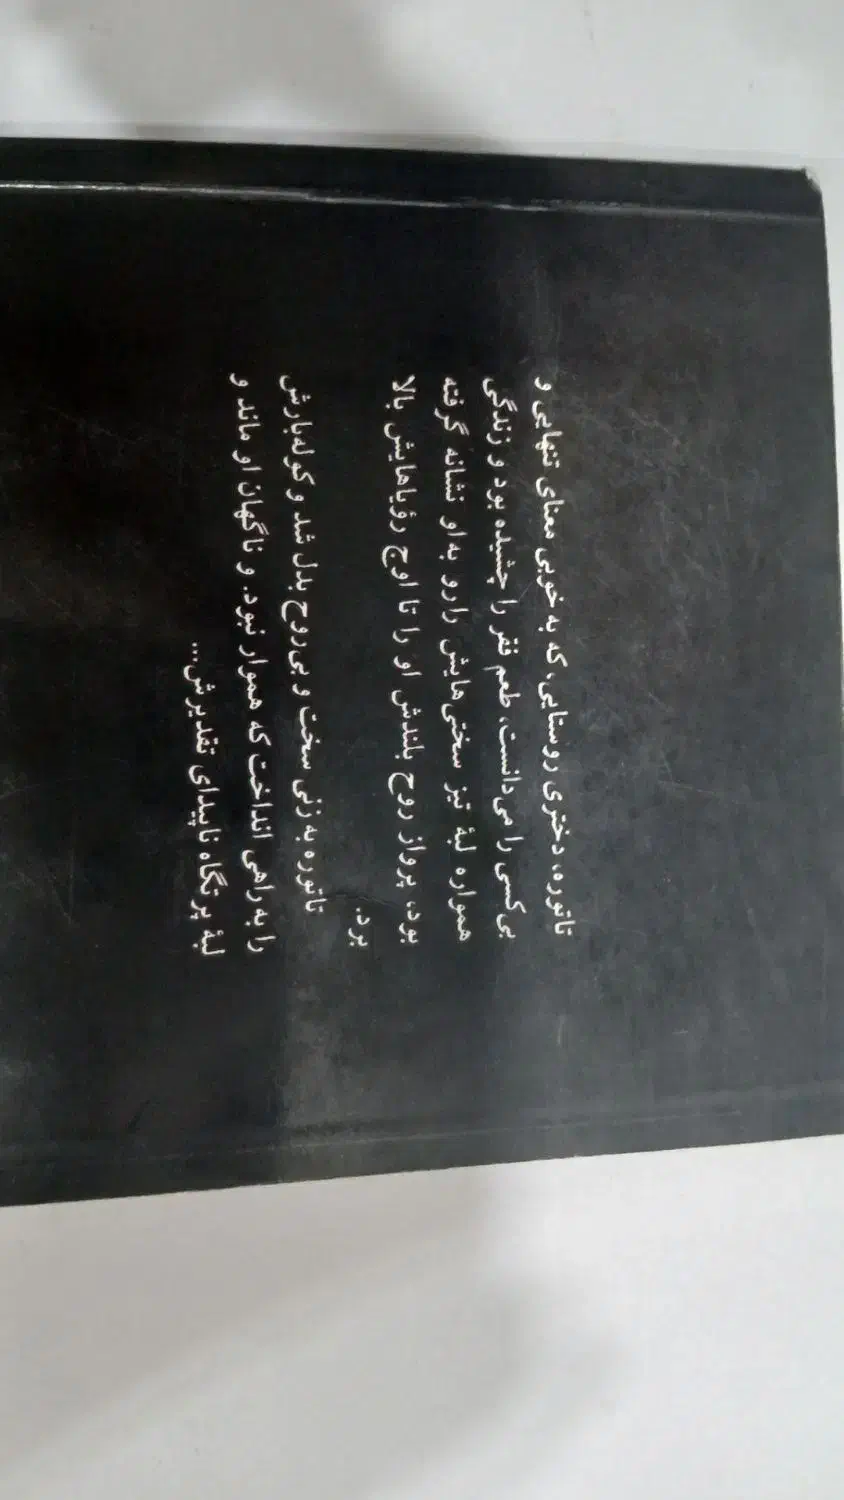 تاتوره، دختری روستایی، که به خوبی معنای تنهایی و
بی‌کسی را می‌دانست، طعم فقر را چشیده بود و زندگی
همواره لبهٔ تیز سختی‌هایش را رو به او نشانه گرفته
بود، پرواز روح بلندش او را تا اوج رؤیاهایش بالا
برد.
تاتوره به زنی سخت و بی‌روح بدل شد و کوله‌بارش
را به راهی انداخت که هموار نبود. و ناگهان او ماند و
لبهٔ پرتگاه ناپیدای تقدیرش...